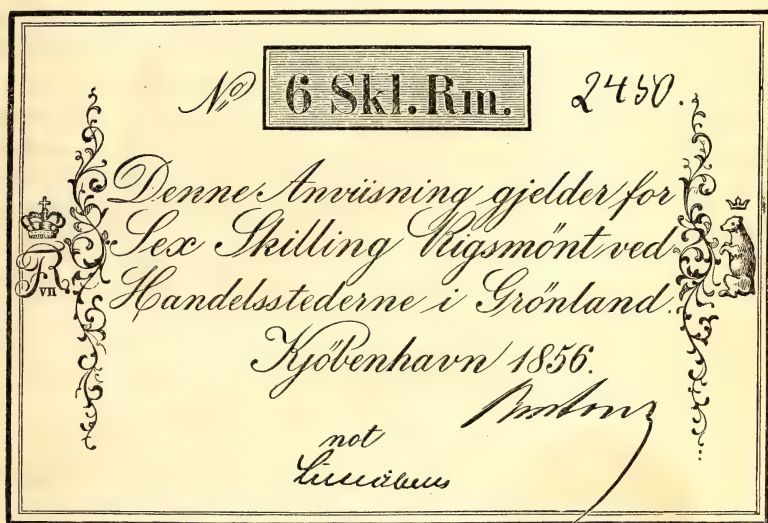 No 6 Skl. Rm. 2450.
Denne Anviisning gjelder for
Sex Skilling Rigsmönt ved
Handelsstederne i Grönland.
Kjöbenhavn 1856.
not
F
VII